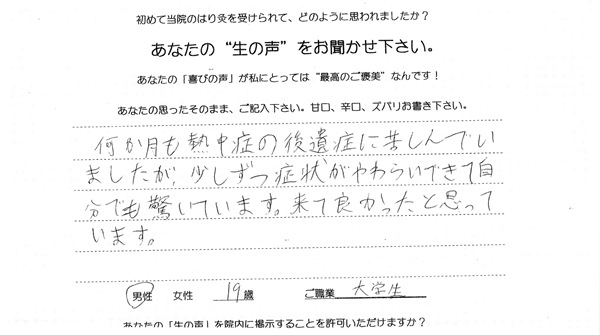 初めて当院のはり灸を受けられて、どのように思われましたか？
あなたの“生の声”をお聞かせ下さい。
あなたの「喜びの声」が私にとっては“最高のご褒美”なんです！
あなたの思ったそのまま、ご記入下さい。甘口、辛口、ズバリお書き下さい。
何か月も熱中症の後遺症に苦しんでい
ましたが、少しずつ症状がやわらいできて自
分でも驚いています。来て良かったと思って
います。
男性 女性 19歳 ご職業 大学生
あなたの「生の声」を院内に掲示することを許可いただけますか？